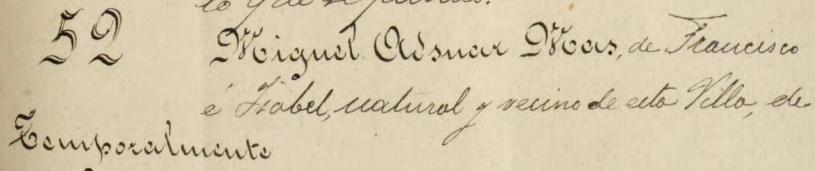 lo que se
52 Miguel Adsuar Mas, de Francisco
é Isabel, natural y vecino de esta Villa, de
Temporalmente